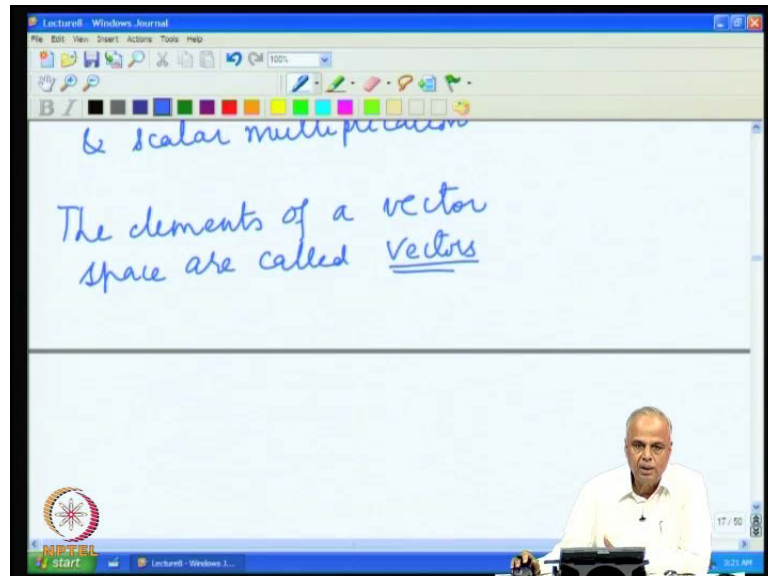 Lecture8 - Windows Journal
File Edit View Insert Actions Tools Help
100%
B I
& scalar multiplication
The elements of a vector
space are called vectors
17 / 50
NPTEL
start Lecture8 - Windows J... 3:21 AM